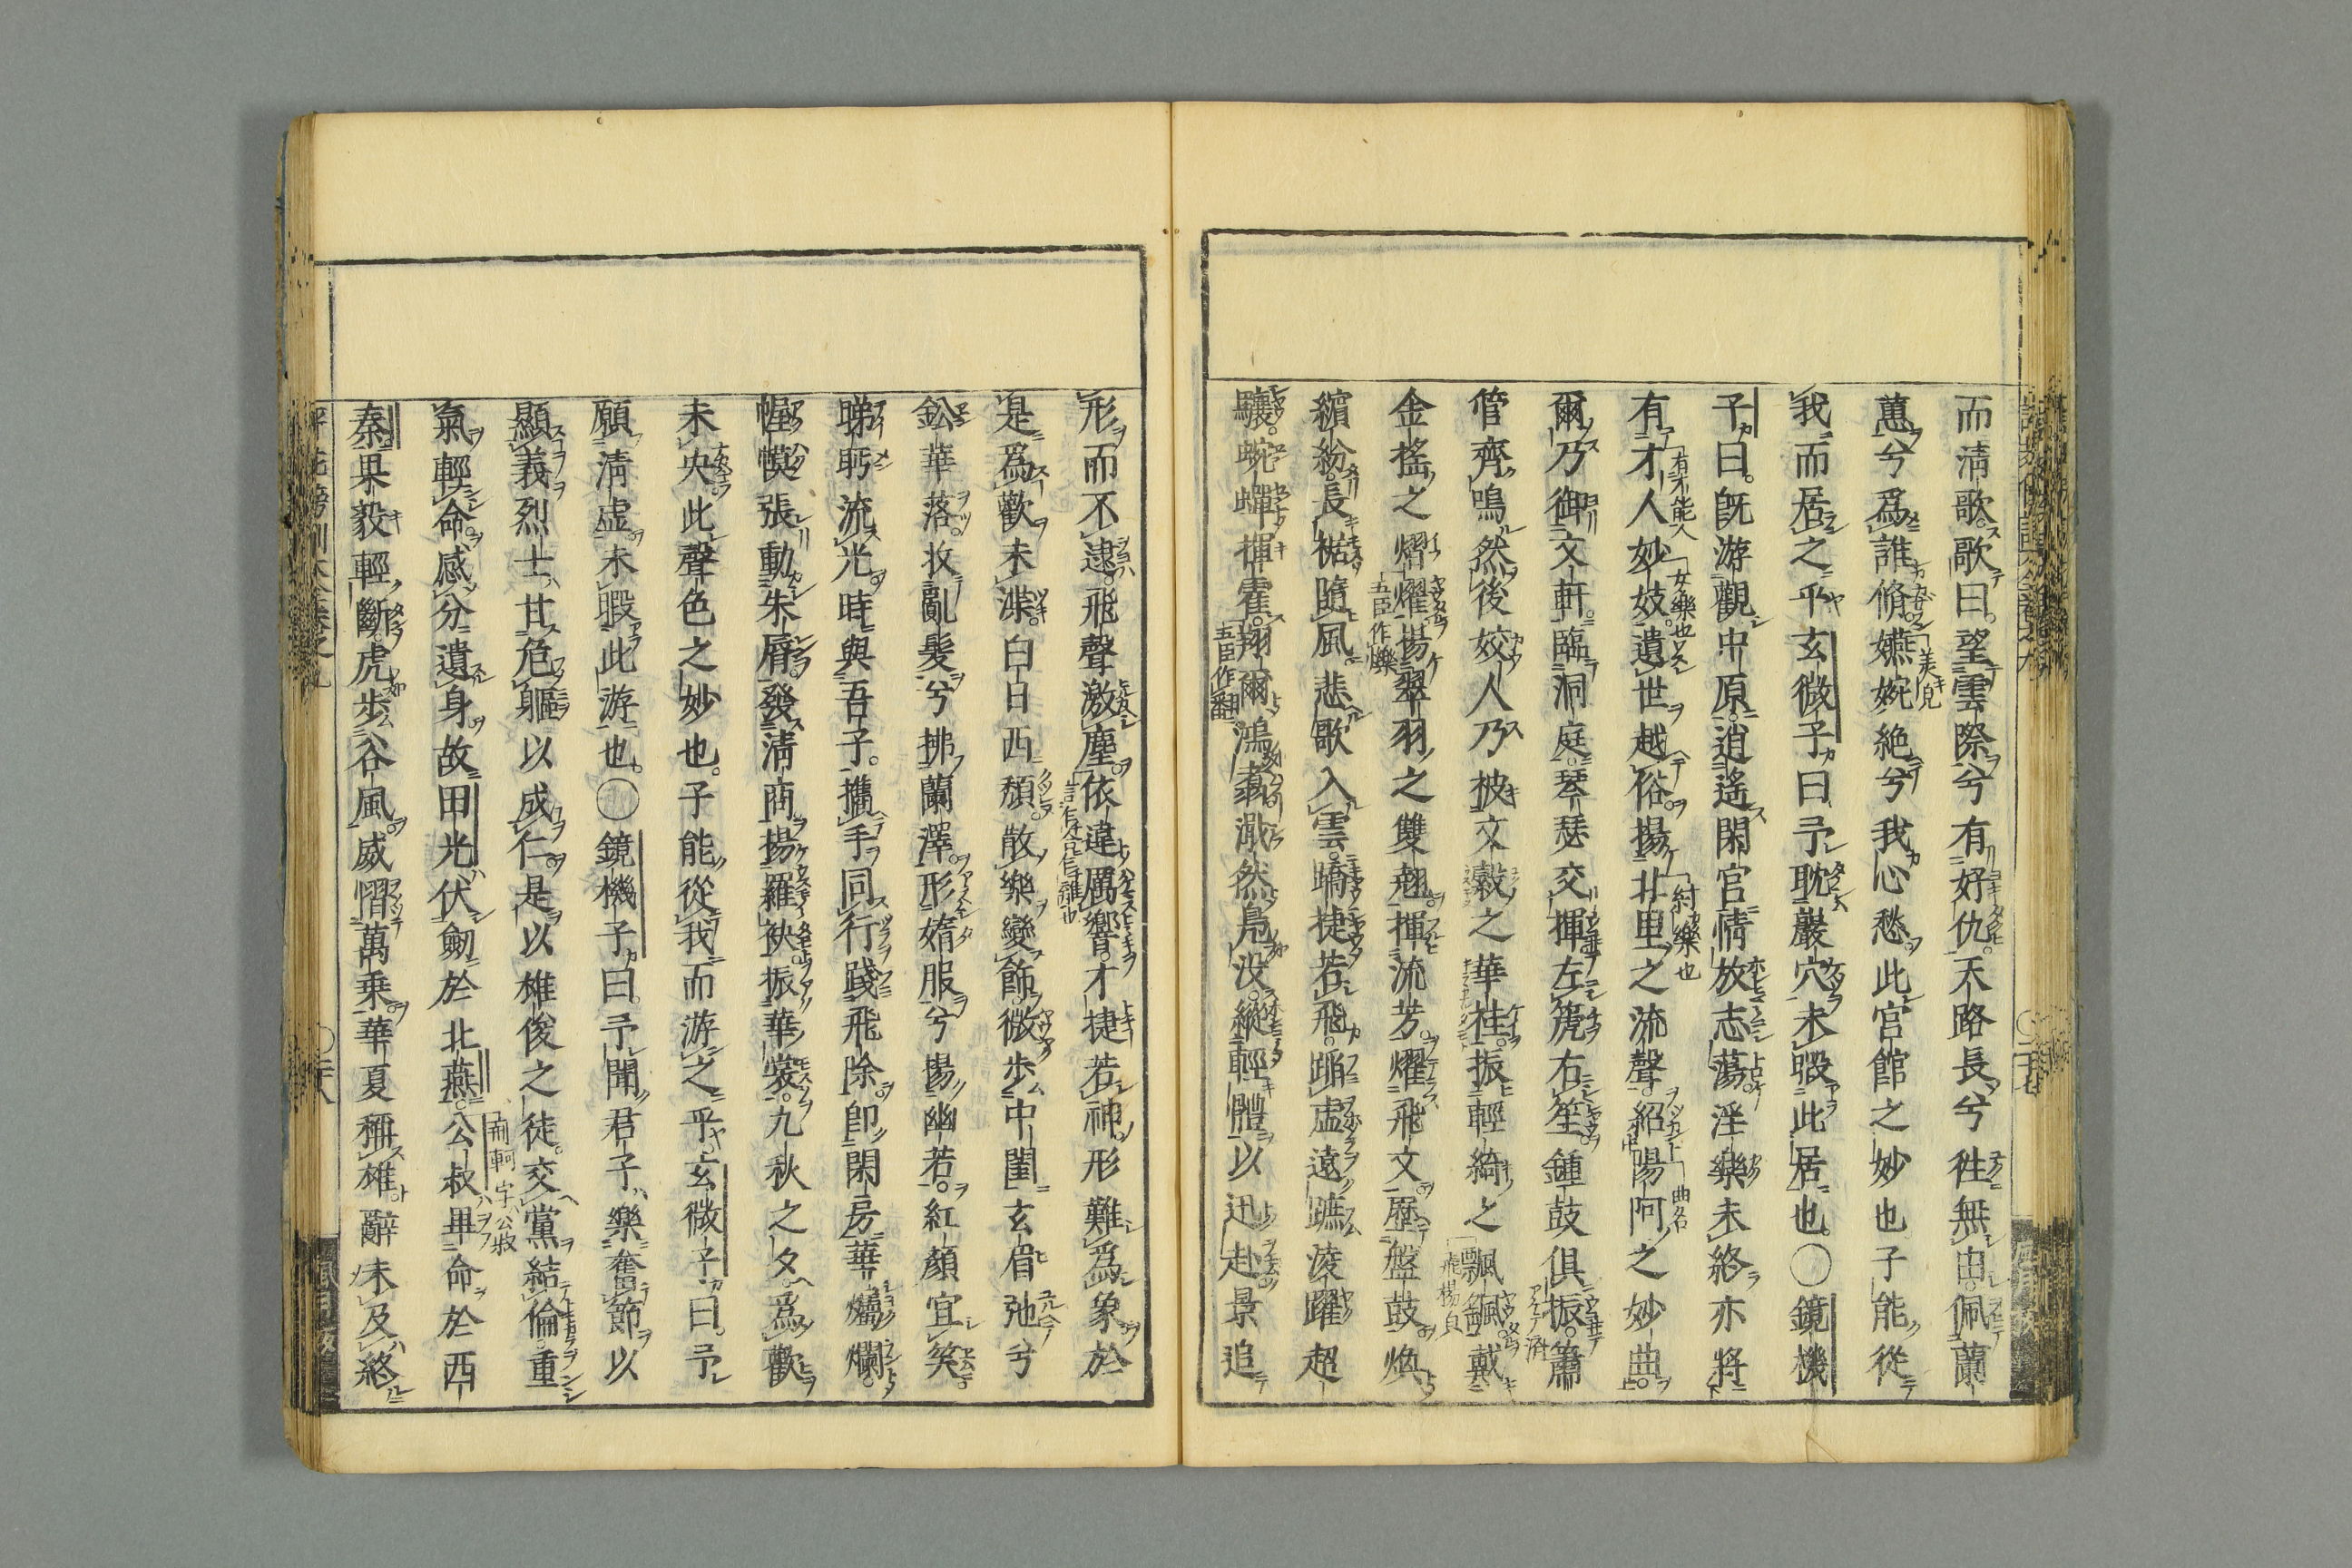 而清歌。歌曰。望雲際兮有好仇。天路長兮往無由。佩蘭
蕙兮爲誰脩。嬿婉絶兮我心愁。此宮館之妙也子能從
我而居之乎玄微子曰予耽巖穴未暇此居也。〇鏡機
子曰。既游觀中原。逍遙閑宮情放志蕩。淫樂未終亦將
有才人妙妓。遺世越俗。揚北里之流聲。紹陽阿之妙曲。
爾乃御文軒。臨洞庭。琴瑟交揮左箎右笙鍾鼓俱振。簫
管齊鳴然後姣人乃被文縠之華袿。振輕綺之飄颻。戴
金搖之熠燿。揚翠羽之雙翹。揮流芳。燿飛文。歷盤鼓。煥
繽紛。長裾隨風。悲歌入雲。蹻捷若飛。蹈虛遠蹠凌躍超
驤。蜿蟬揮霍。翔爾鴻翥濈然鳧没。縱輕體以迅赴景追
形而不逮。飛聲激塵。依違厲響。才捷若神。形難爲象於
是爲歡未渫。白日西頽。散樂變飾。微步中閨玄眉弛兮
鈆華落。收亂髮兮拂蘭澤。形媠服兮揚幽若。紅顏宜笑。
睇眄流光。時與吾子。攜手同行。踐飛除。卽閑房華爥爛。
幄幙張動朱脣。發清商揚羅袂。振華裳。九秋之夕。爲歡
未央此聲色之妙也。子能從我而游之乎。玄微子曰。予
願清虛。未暇此游也。〇鏡機子曰。予聞君子樂奮節以
顯義烈士甘危軀以成仁。是以雄俊之徒。交黨結倫重
氣輕命。感分遺身。故田光伏劒於北燕。公叔畢命於西
秦果毅輕斷。虎步谷風。威慴萬乘。華夏稱雄。辭未及終
有才能人
女樂也
美皃
紂樂也
曲名
飛揚皃
五臣作爍
五臣作翻
荊軻字公叔